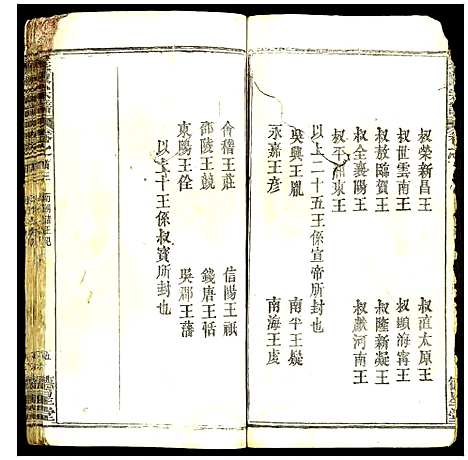 叔榮新昌王 叔宣太原王
叔世雲南王 叔顯海甯王
叔敖臨賀王 叔隆新凝王
叔全襄陽王 叔獻河南王
叔平湘東王
以上二十五王係宣帝所封也
吳興王胤 南平王嶷
永嘉王彥 南海王虔
會稽王莊 信陽王祇
邵陵王兢 錢唐王恬
東陽王佺 吳郡王藩
以上十王係叔寳所封也
德星堂
德星堂